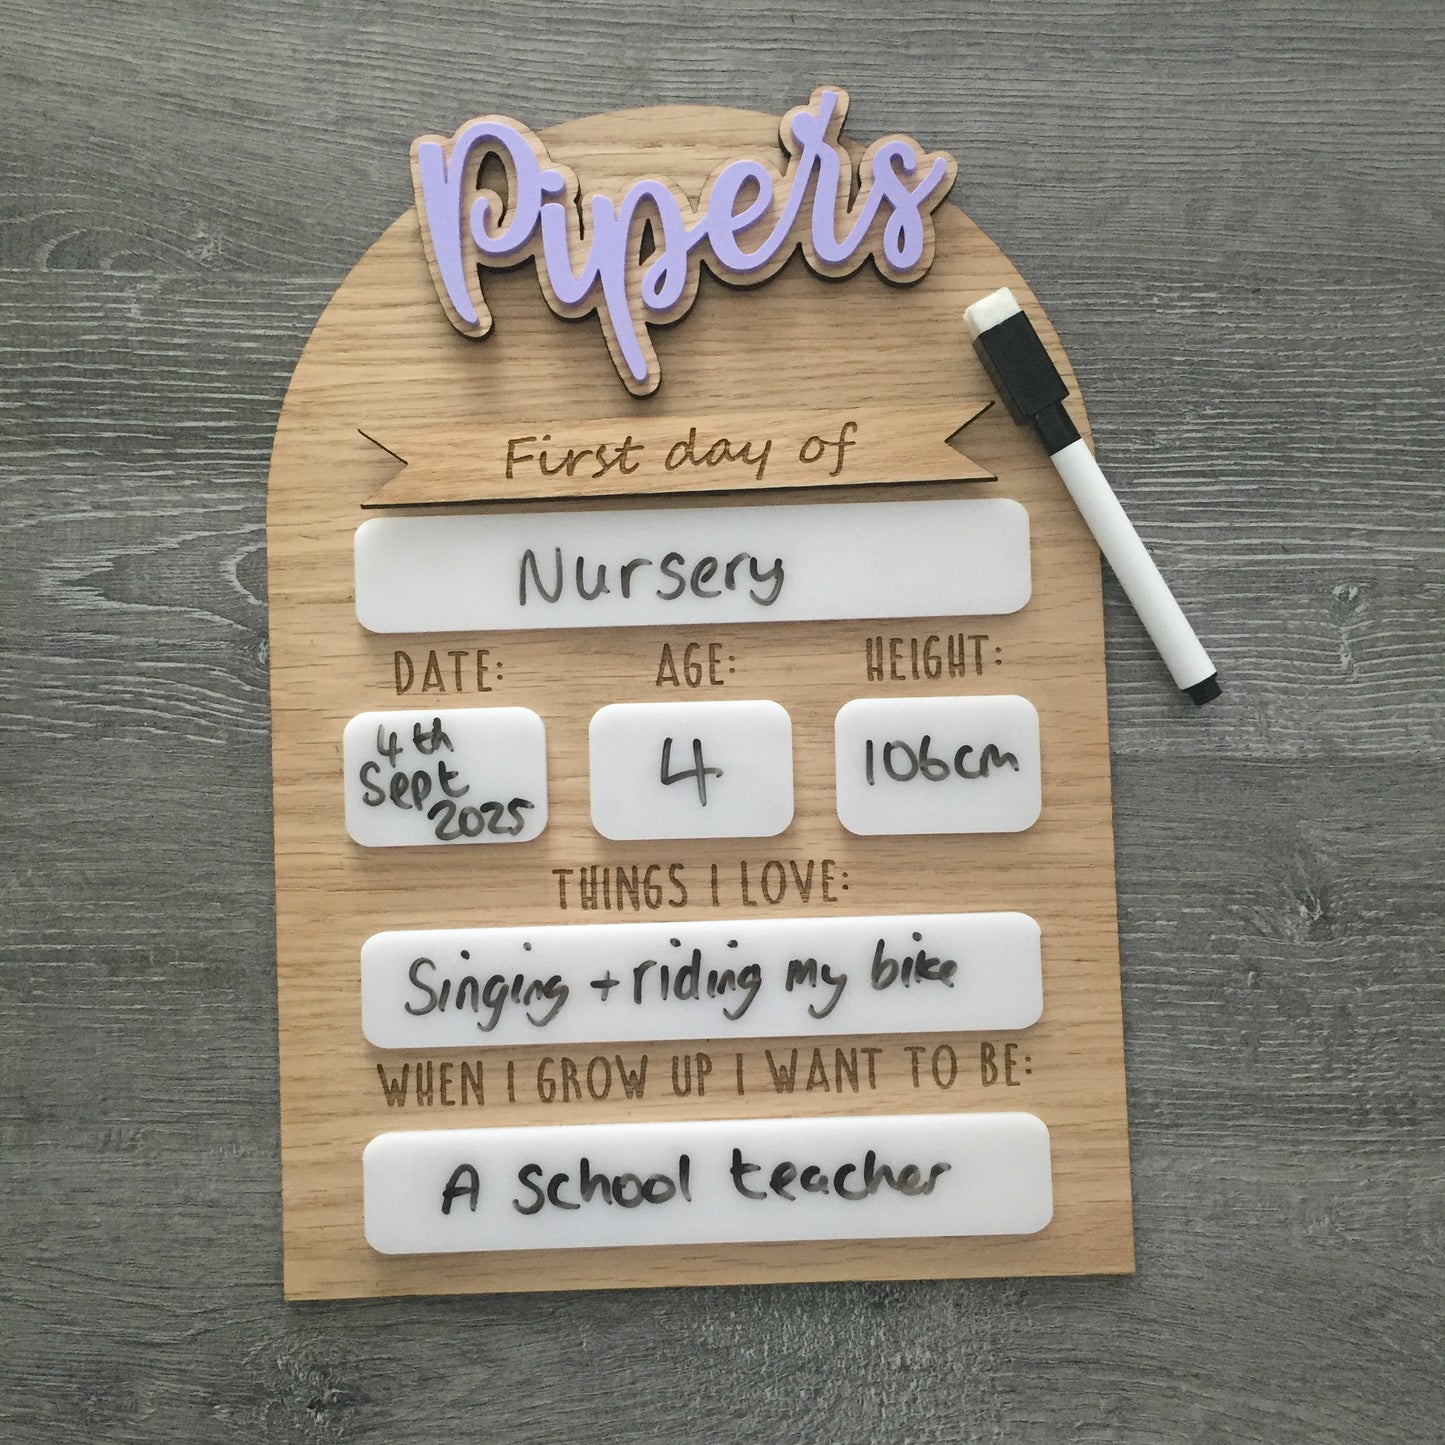 Pipers
First day of
Nursery
DATE: AGE: HEIGHT:
4th
Sept
2025
4
106cm
THINGS I LOVE:
Singing + riding my bike
WHEN I GROW UP I WANT TO BE:
A school teacher